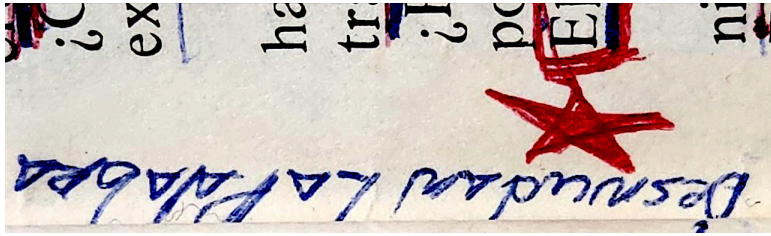 ¿C
ex
ha
tra
¿H
po
El
ni
Desnudar LA PALABRA